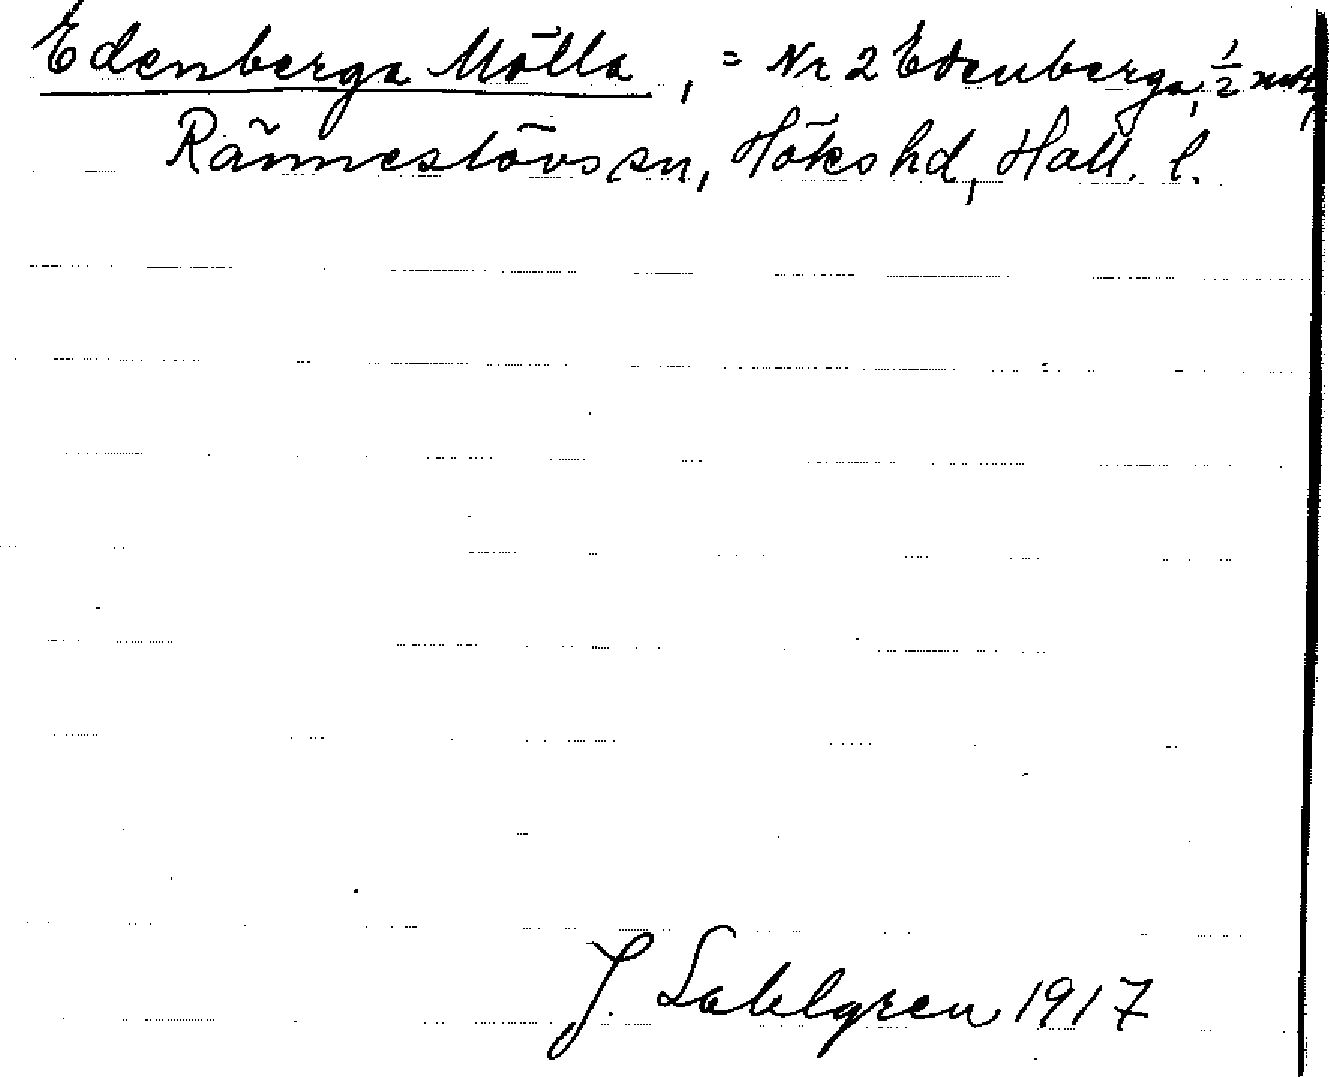 Edenberga Mölla, = Nr 2 Edenberga, 1/2 mtl,
Ränneslövs sn, Höks hd, Hall. l.
J. Sahlgren 1917